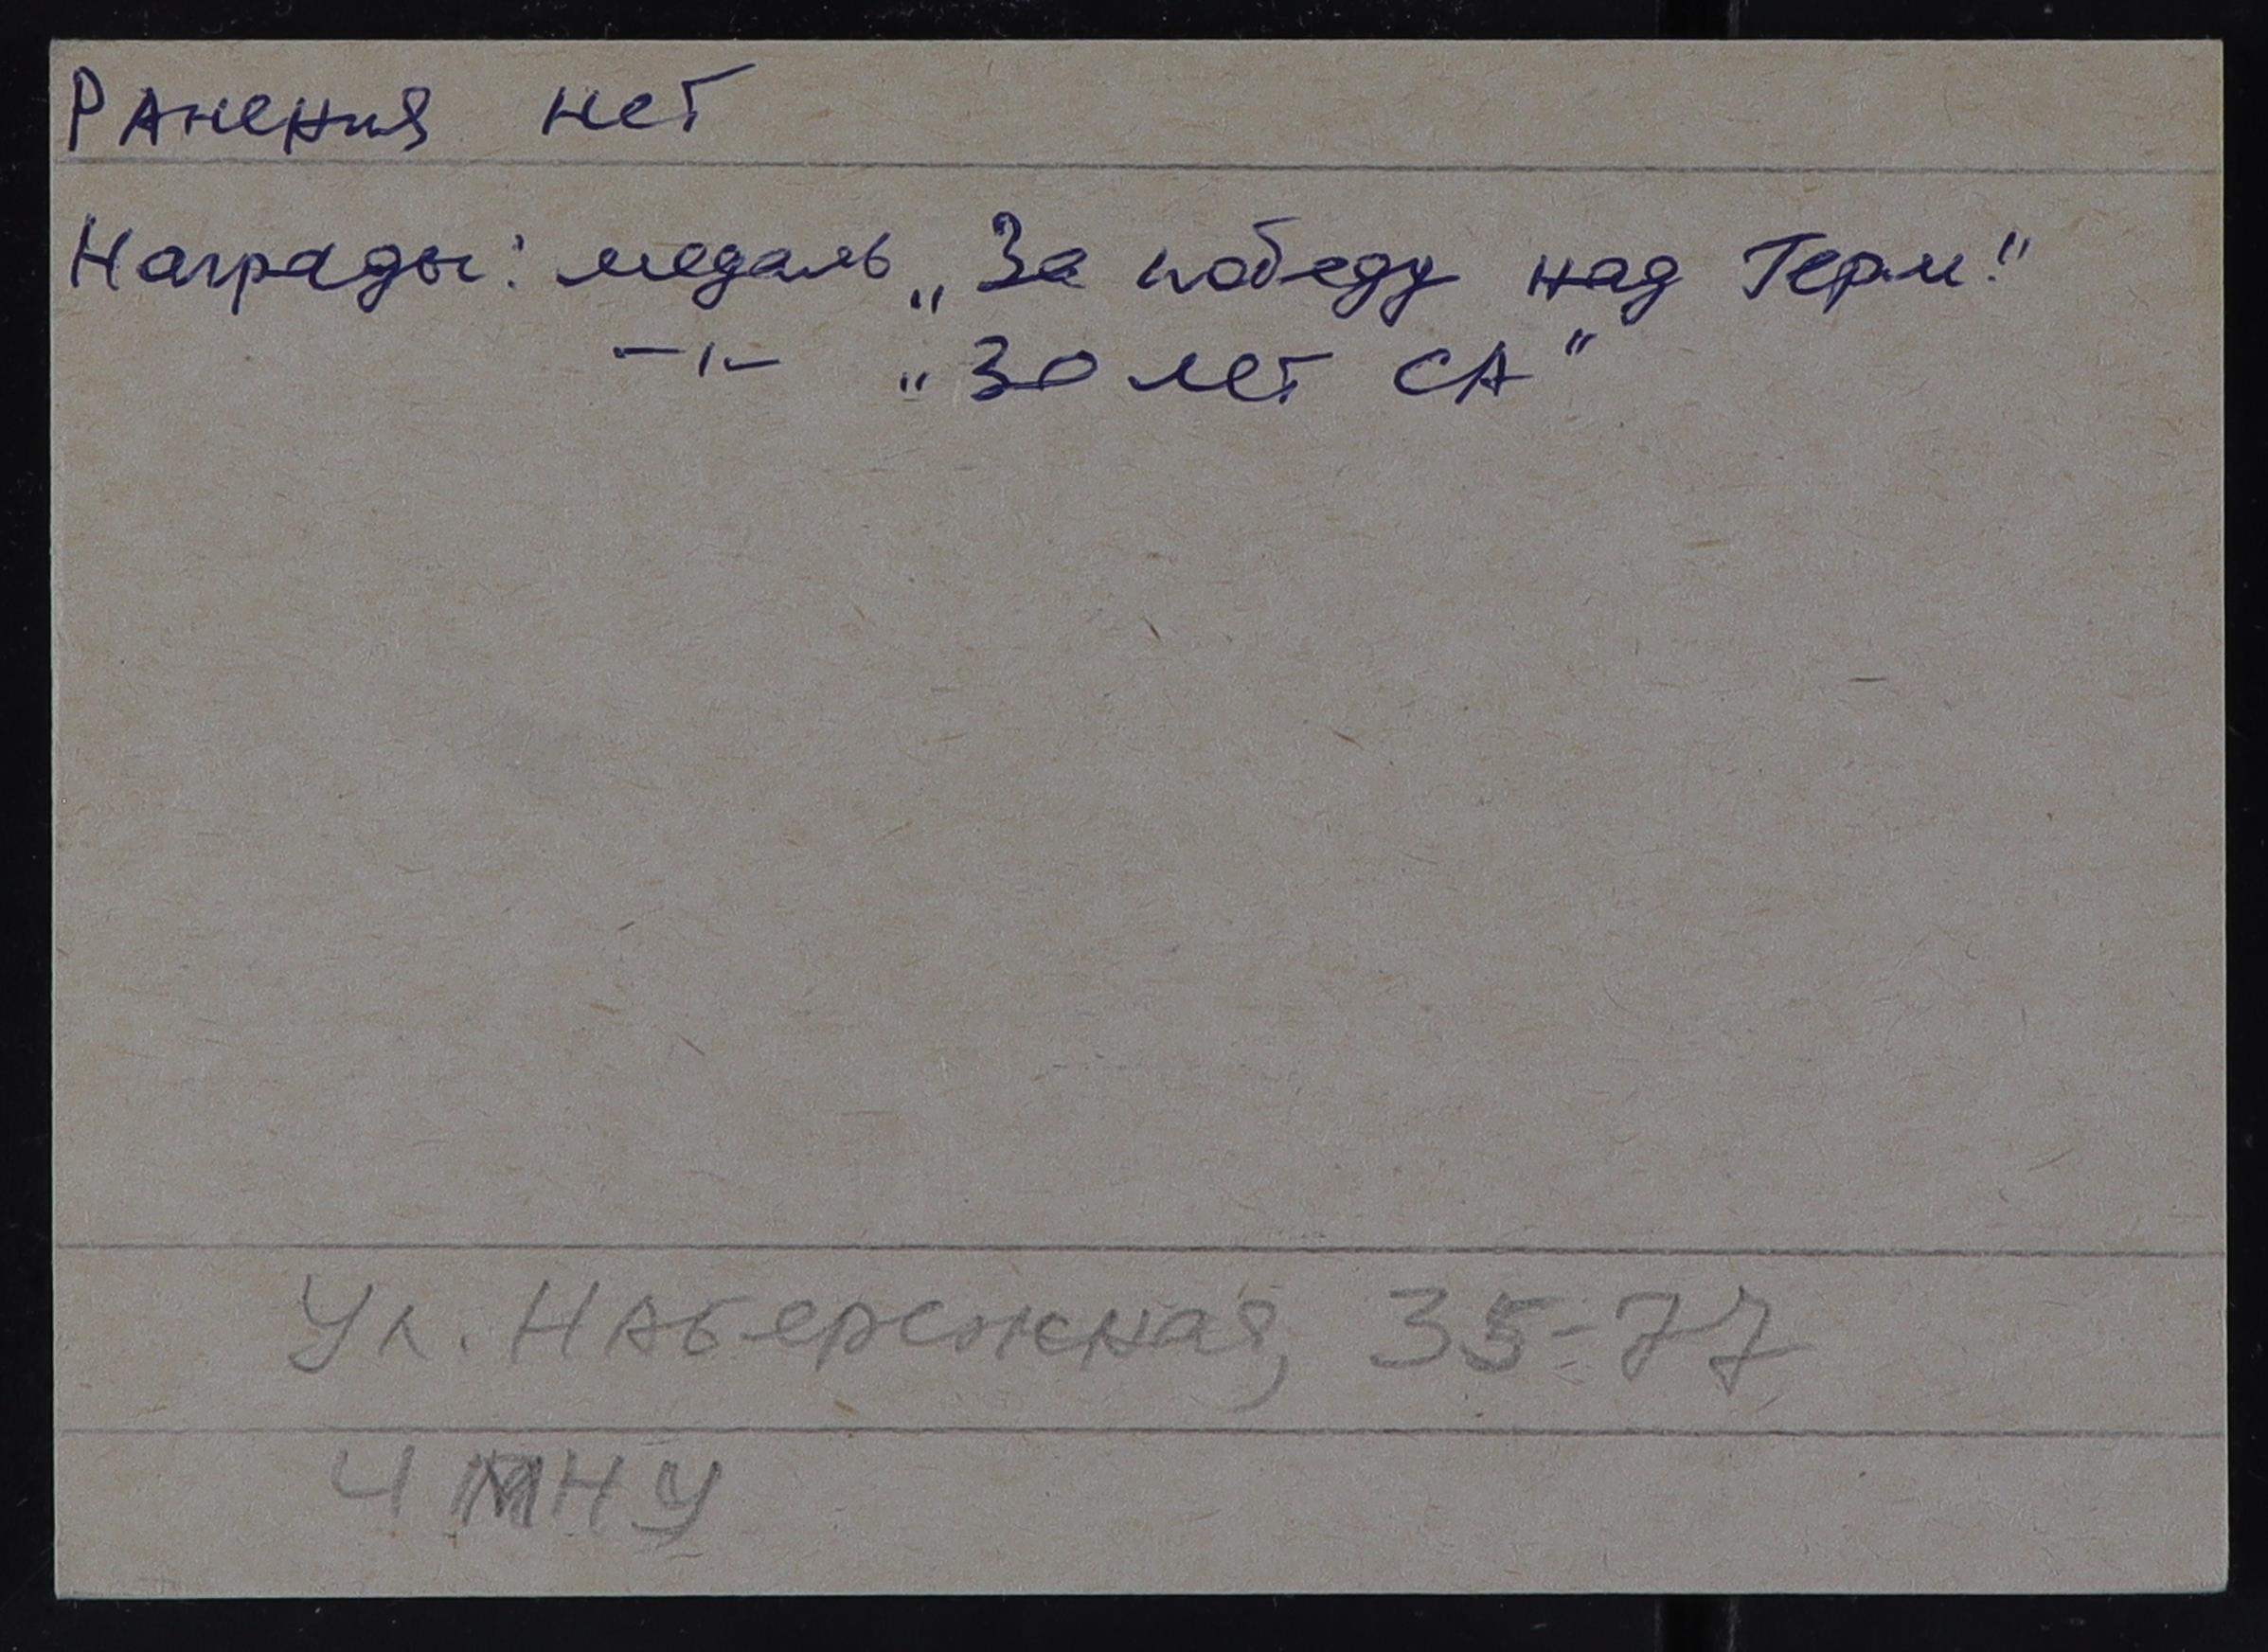 Ранения нет
Награды: медаль „За победу над Герм."
—"— „30 лет СА"
Ул. Набережная, 35-77
ЧМНУ